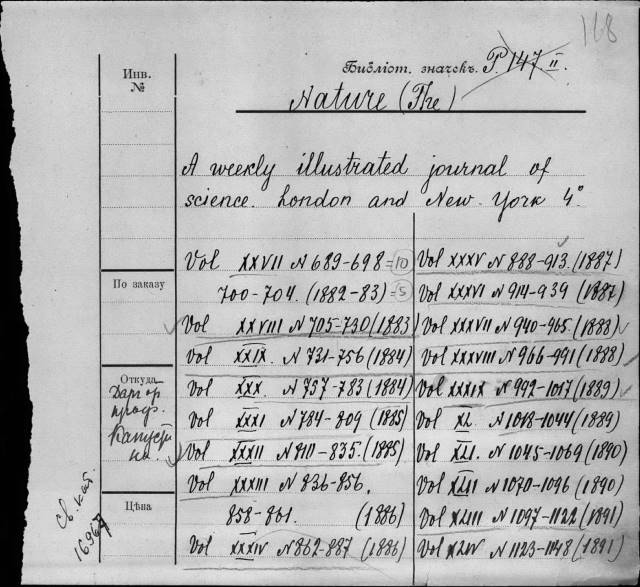 168
Библіот. значекъ. P. 147. II.
Nature (The)
A weekly illustrated journal of
science. London and New-York 4°
Инв.
№
По заказу
Откуда
Дар от
проф.
Капусти
на.
Цѣна
Св. кат.
16967
Vol XXVII N 689-698 = 10
700-704. (1882-83) = 5
Vol XXVIII N 705-730 (1883)
Vol XXIX. N 731-756 (1884)
Vol XXX. N 757-783 (1884)
Vol XXXI N 784-809 (1885)
Vol XXXII N 810-835. (1885)
Vol XXXIII N 836-856.
858-861. (1886)
Vol XXXIV N 862-887 (1886)
Vol XXXV N 888-913. (1887)
Vol XXXVI N 914-939 (1887)
Vol XXXVII N 940-965. (1888)
Vol XXXVIII N 966-991 (1888)
Vol XXXIX N 992-1017 (1889)
Vol XL. N 1018-1044 (1889)
Vol XLI. N 1045-1069 (1890)
Vol XLII N 1070-1096 (1890)
Vol XLIII N 1097-1122 (1891)
Vol XLIV N 1123-1148 (1891)